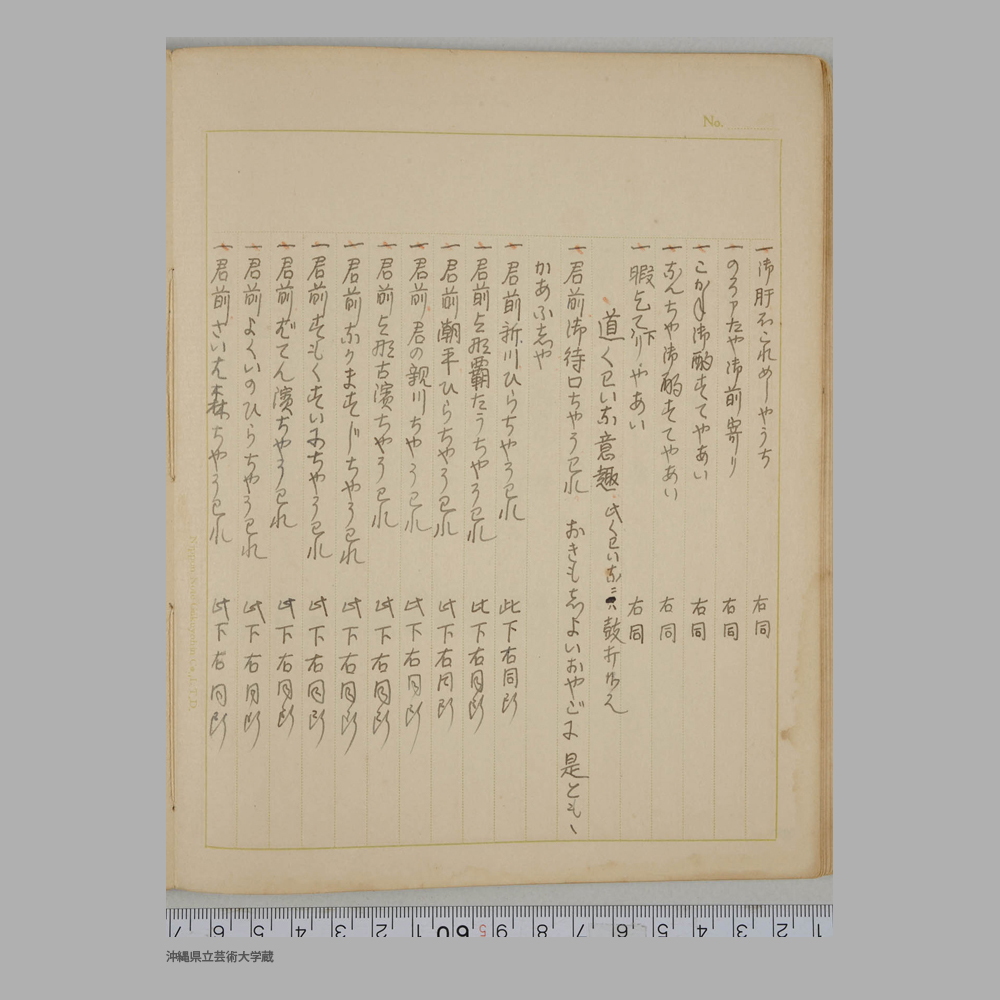 No.
一 御肝不これめしやうち 右同
一 のろアたや御前寄り 右同
一 こかね御酌むてやあい 右同
一 なんちや御酌むてやあい 右同
一 暇乞て下りやあい 右同
道くわいな意趣 此くわいな二鼓打ゆえ
一 君前御待口ちやうわれ おきも志よいおやごま 是とも、
かあふ志や
一 君前新川ひらちやうわれ 此下右同断
一 君前与那覇たうちやうわれ 此下右同断
一 君前潮平ひらちやうわれ 此下右同断
一 君前君の親川ちやうわれ 此下右同断
一 君前与那古濱ちやうわれ 此下右同断
一 君前なりまむじちやうわれ 此下右同断
一 君前むもくむいまちやうわれ 此下右同断
一 君前ばてん濱ぢやうわれ 此下右同断
一 君前よくいのひらちやうわれ 此下右同断
一 君前さいは森ちやうわれ 此下右同断
沖縄県立芸術大学蔵